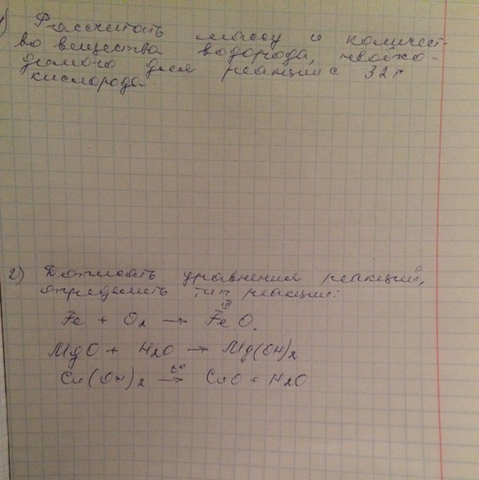 1) Рассчитать массу и количест-
во вещества водорода, необхо-
димого для реакции с 32 г
кислорода.
2) Дописать уравнения реакций,
определить тип реакции:
Fe + O2 → Fe O.
III
MgO + H2O → Mg(OH)2
Cu(OH)2 t° → CuO + H2O